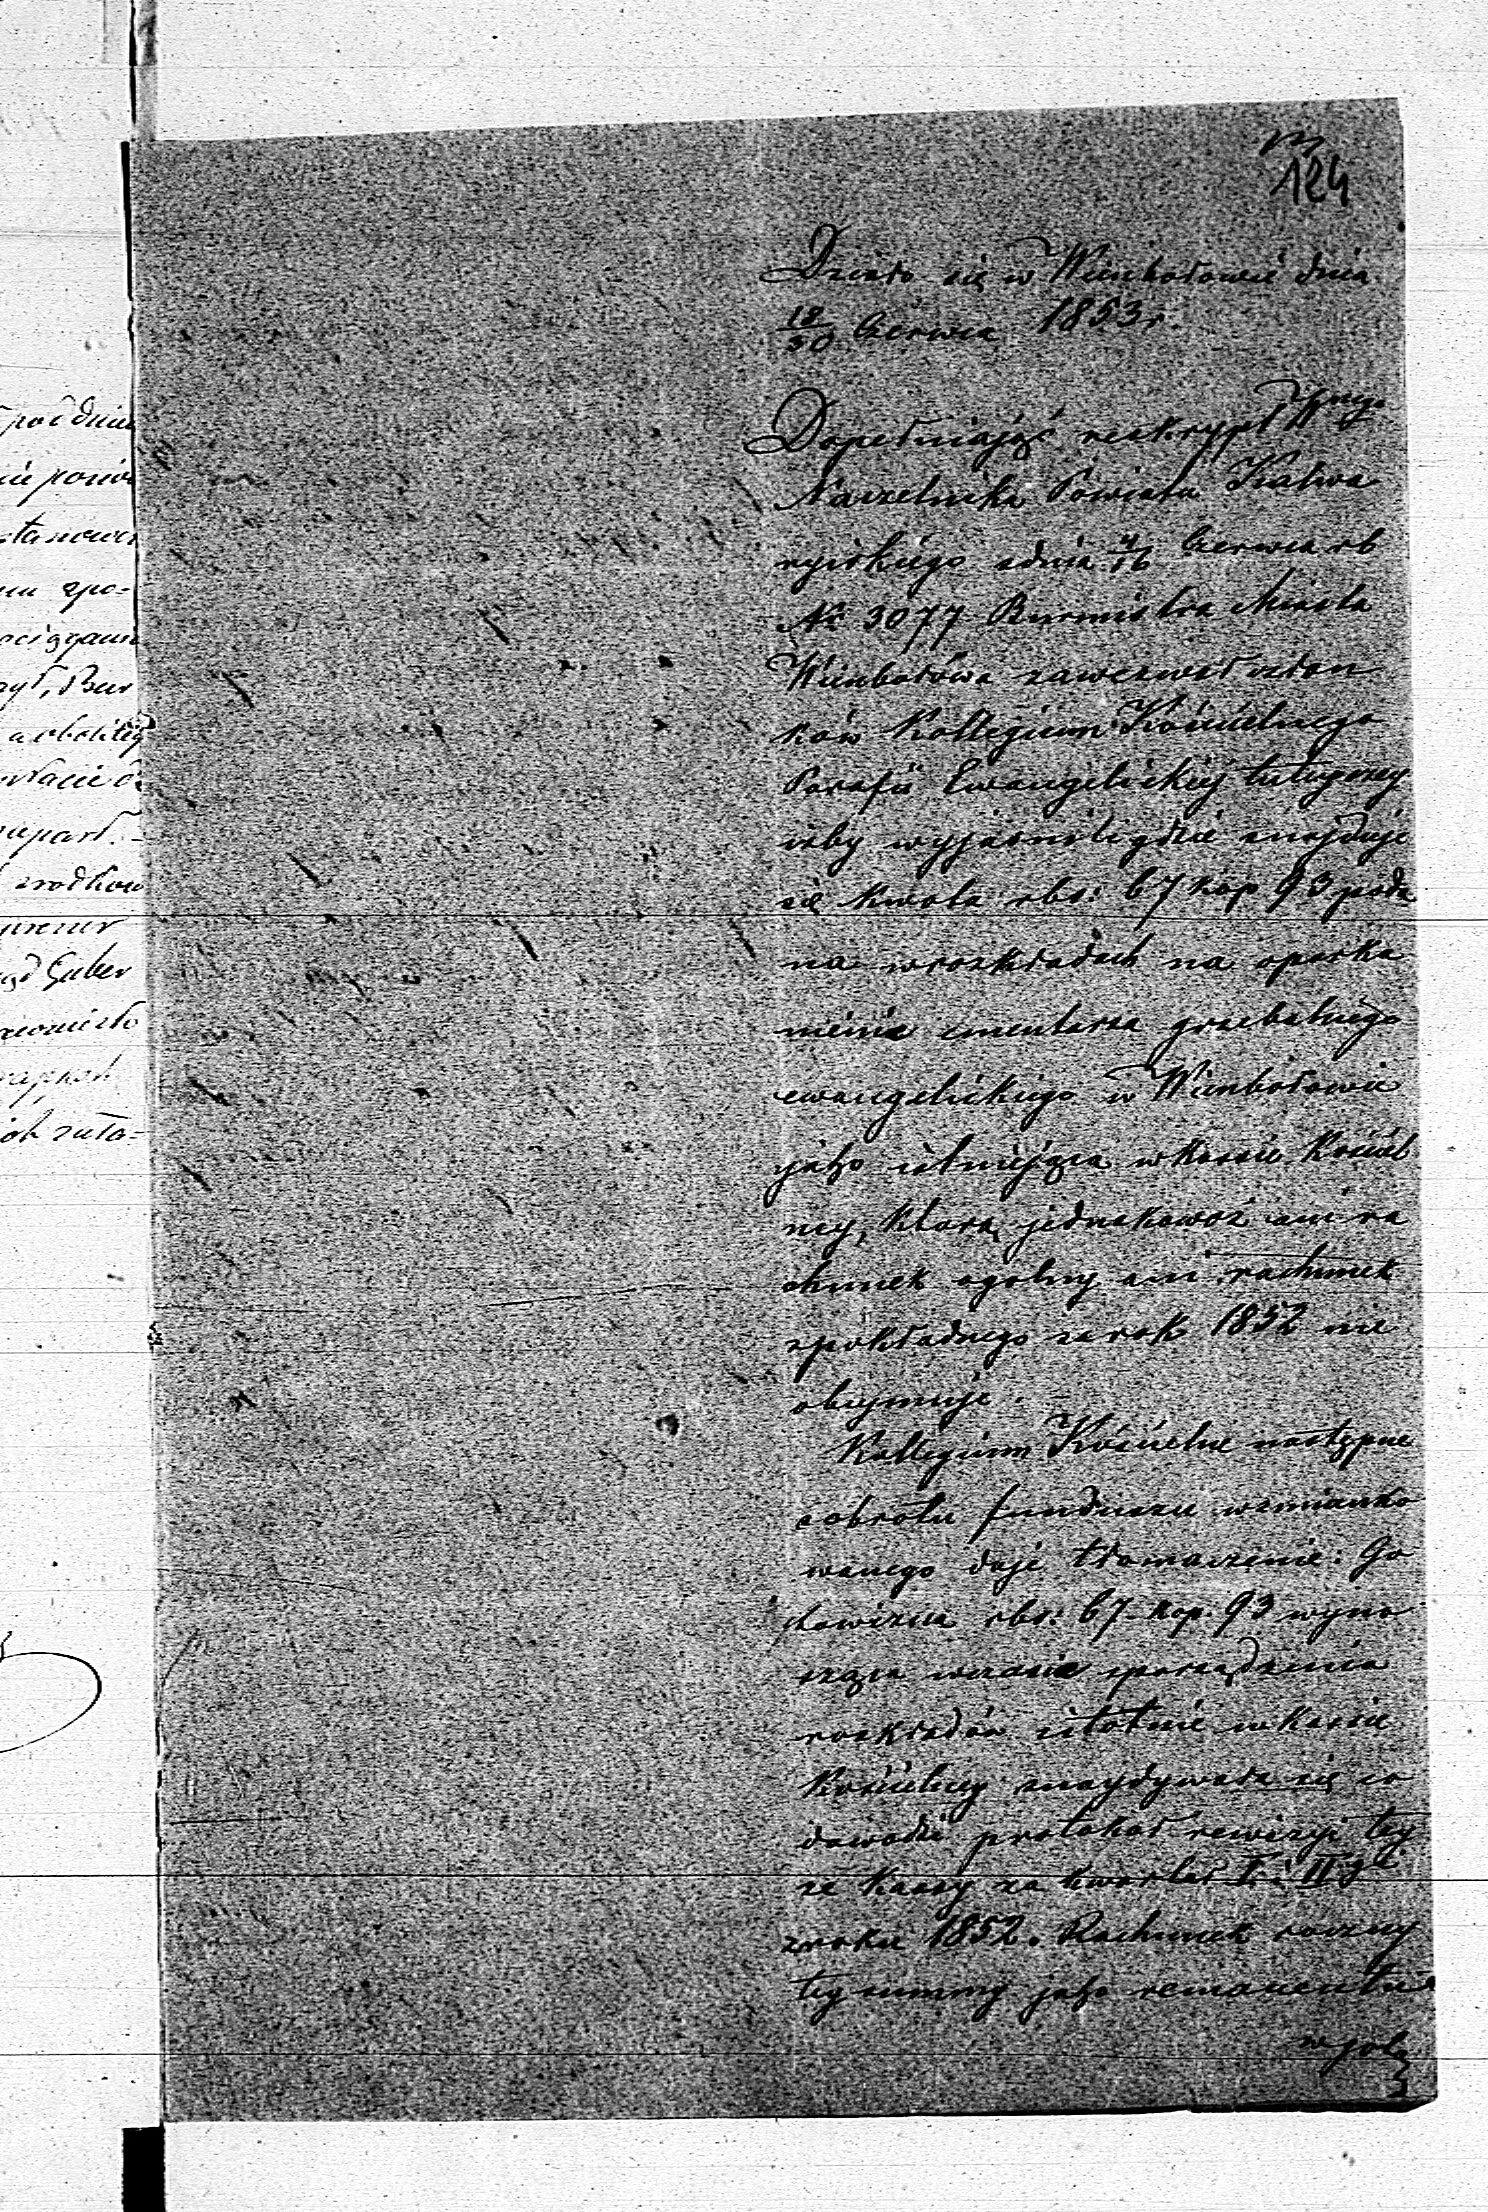 124
Działo się w Wierzbołowie dnia
18/30 Czerwca 1853 r.
Dopełniając reskrypt W nego
Naczelnika Powiatu Kalwa
ryiskiego z dnia 4/16 Czerwca r b
No 3077 Burmistrz Miasta
Wierzbołowa zawezwał człon
ków Kollegium Kościelnego
Parafii Ewangelickiej tutejszej
żeby wyjaśnili gdzie znajduje
się kwota rbs: 67 kop 93 poda
na w rozkładach na oparka
nienie cmentarza grzebalnego
ewangelickiego w Wierzbołowie
jako istniejąca w kassie Kościel
nej, którą jednakowoż ani ra
chunek ogólny ani rachunek
z pokładnego za rok 1852 nie
obejmuje.
Kollegium Kościelne następne
o obrotu funduszu wzmianko
wanego daje tłomaczenie: Go
towizna rbs: 67 kop. 93 wyno
sząca w czasie sporządzenia
rozkładów istotnie w kassie
Kościelnej znaydywała się co
dowodzi protokół rewizyi tej
że kassy za kwartał I i II gi
z roku 1852. Rachunek roczny
tej summy jako remanentu
pośdnie
stanowi
zpo-
ociągani
zył, Bur
raport.
srodków
ąd Guber